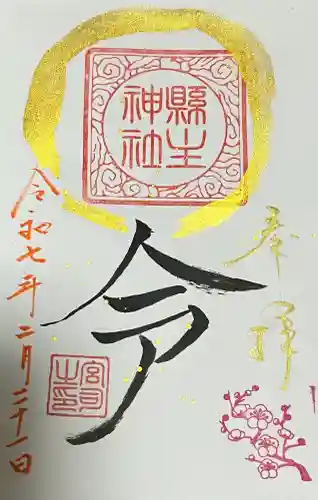 奉拝
縣主
神社
令
令和七年二月二十一日
宮司
之印